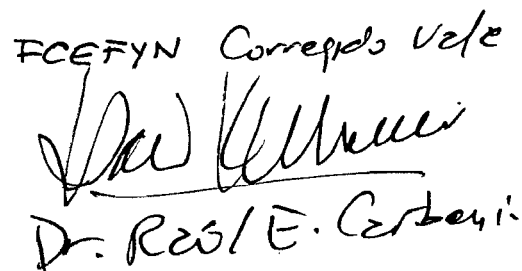 FCEFYN Corregido Vale
Dr. Raúl E. Carbonı.